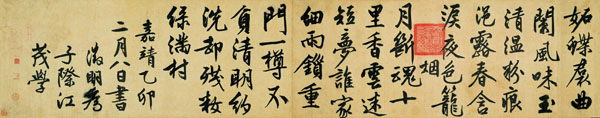 妬蝶羣曲
闌風味玉
清温粉痕
浥露春含
淚夜色籠
烟
月斷魂十
里香雲迷
短夢誰家
細雨鎖重
門一樽不
負清明約
洗却殘
綠滿村
嘉靖乙卯
二月八日書
徵明為
子際江
茂學